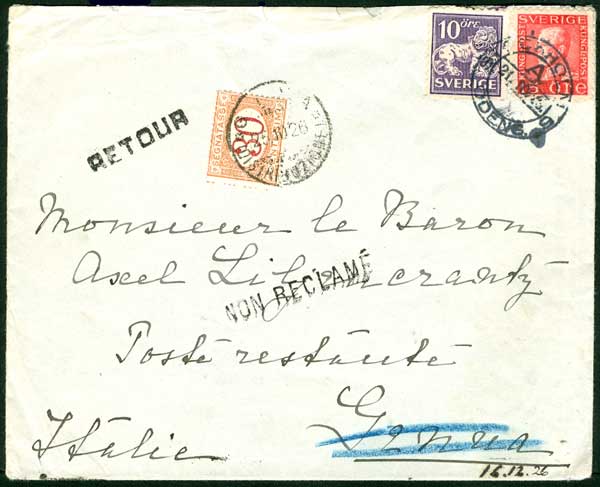 10 öre
SVERIGE
SVERIGE
SEGNATASSE
30
26
RETOUR
Monsieur le Baron
Axel Liliencrantz
NON RECLAMÉ
Poste restante
Genua
Italie
16.12.26